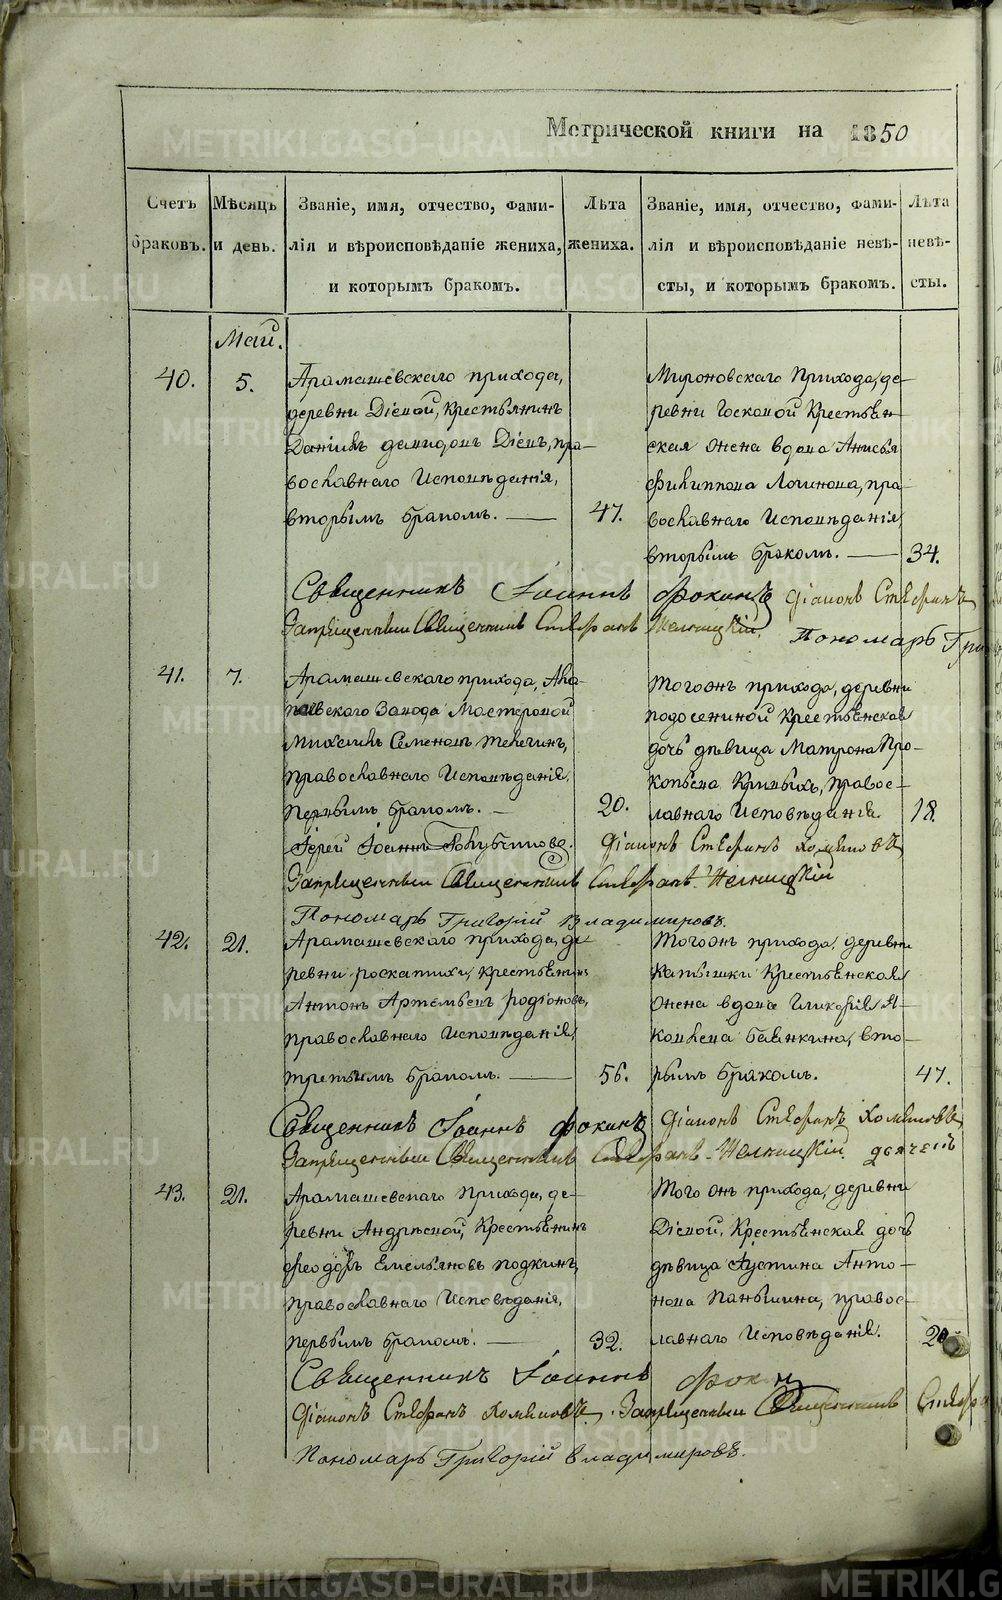 Метрической книги на 1850
Счетъ браковъ.
Мѣсяцъ и день.
Званіе, имя, отчество, фами-
лія и вѣроисповѣданіе жениха,
и которымъ бракомъ.
Лѣта жениха.
Званіе, имя, отчество, фами-
лія и вѣроисповѣданіе невѣ-
сты, и которымъ бракомъ.
Лѣта невѣ-
сты.
Май.
40.
5.
Арамашевскаго прихода,
деревни Діевой, Крестьянинъ
Даніилъ Демидовъ Діевъ, пра-
вославнаго Исповѣданія,
вторымъ бракомъ.
47.
Мироновскаго Прихода, де-
ревни Крестьян-
ская жена вдова Анисья
Филиппова Логинова, пра-
вославнаго Исповѣданія,
вторымъ бракомъ.
34.
Священникъ Іоаннъ Фокинъ Діаконъ Стефанъ
Запрещенный Священникъ Стефанъ
Пономарь
41.
7.
Арамашевскаго прихода, Ала-
паевскаго Завода Мастеровой
Михаилъ Семеновъ Телегинъ,
православнаго Исповѣданія,
первымъ бракомъ.
20.
Тогожъ прихода, деревни
Подосениной Крестьянская
дочь дѣвица Матрона Про-
копьева Кривыхъ, правос-
лавнаго Исповѣданія
18.
Іерей Іоаннъ Діаконъ Стефанъ
Запрещенный Священникъ Стефанъ
Пономарь Григорій Владимировъ.
42.
21.
Арамашевскаго прихода, де-
ревни Роскатихи, крестьянинъ
Антонъ Артемьевъ Родіоновъ,
православнаго Исповѣданія,
третьимъ бракомъ.
56.
Тогожъ прихода, деревни
Катышки Крестьянская
жена вдова Гликерія Я-
ковлева вто-
рымъ бракомъ.
47.
Священникъ Іоаннъ Фокинъ Діаконъ Стефанъ
Запрещенный Священникъ Стефанъ
43.
21.
Арамашевскаго Прихода, де-
ревни Андрѣевой, Крестьянинъ
Феодоръ Емельяновъ Подкинъ,
православнаго Исповѣданія,
первымъ бракомъ.
32.
Того жъ прихода, деревни
Діевой, Крестьянская дочь
дѣвица Іустина Анто-
нова Паньшина, правос-
лавнаго Исповѣданія.
20
Священникъ Іоаннъ Фокинъ
Діаконъ Стефанъ Запрещенный Священникъ
Пономарь Григорій Владимировъ.
METRIKI.GASO-URAL.RU